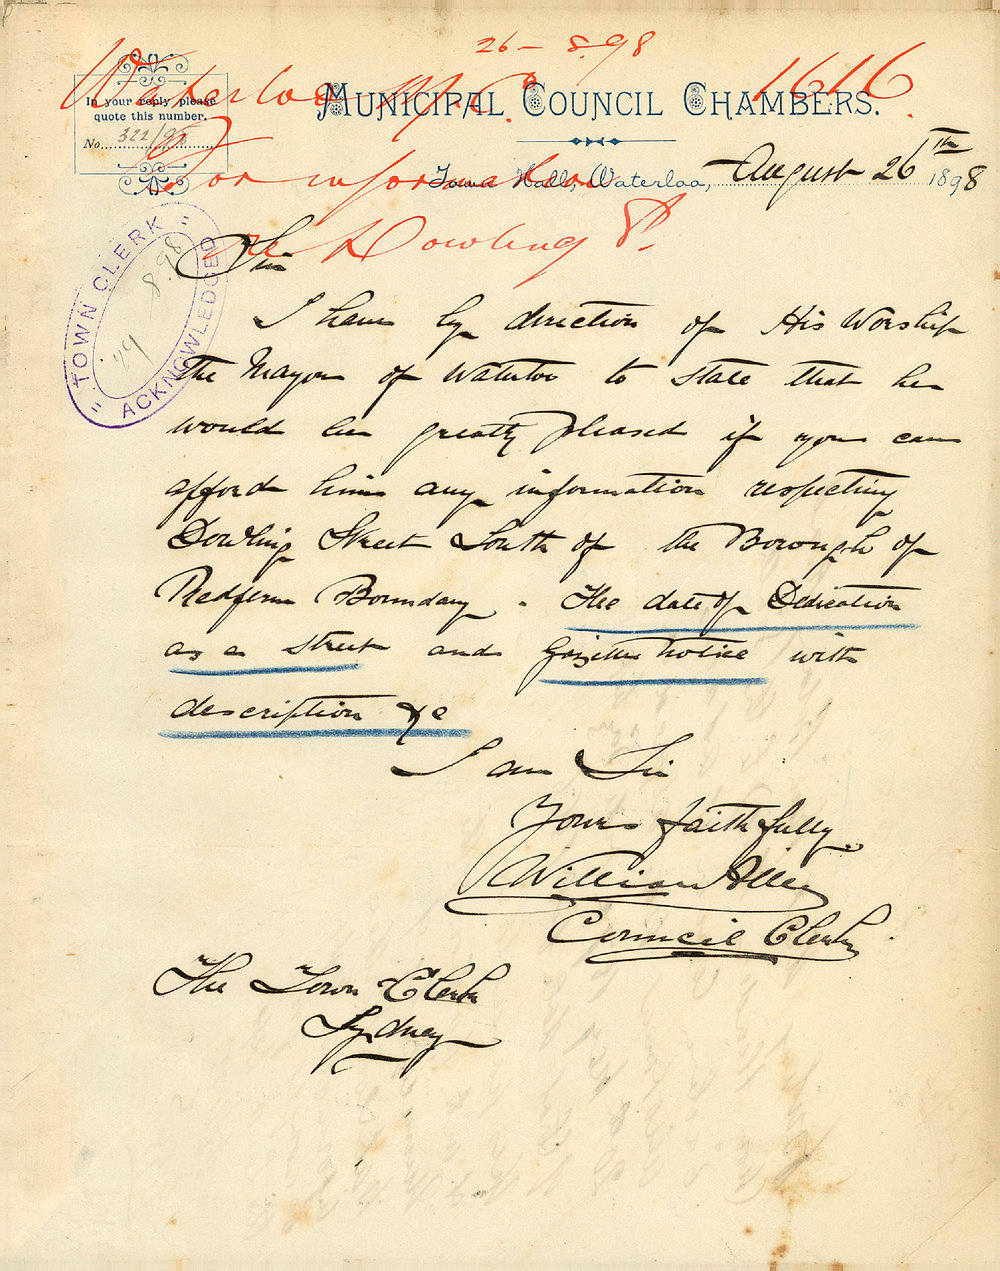 26-8.98
Waterloo M.C. 1616.
For information
re Dowling St.
In your reply please
quote this number.
No. 322/98
MUNICIPAL COUNCIL CHAMBERS.
Town Hall, Waterloo, August 26th 1898
"TOWN CLERK"
29 8.98
ACKNOWLEDGED
Sir
I have by direction of His Worship
the Mayor of Waterloo to state that he
would be greatly pleased if you can
afford him any information respecting
Dowling Street South of the Borough of
Redfern Boundary. The date of Dedication
as a street and Gazette notice with
description &c
I am Sir
Yours faithfully
William Allen
Council Clerk
The Town Clerk
Sydney